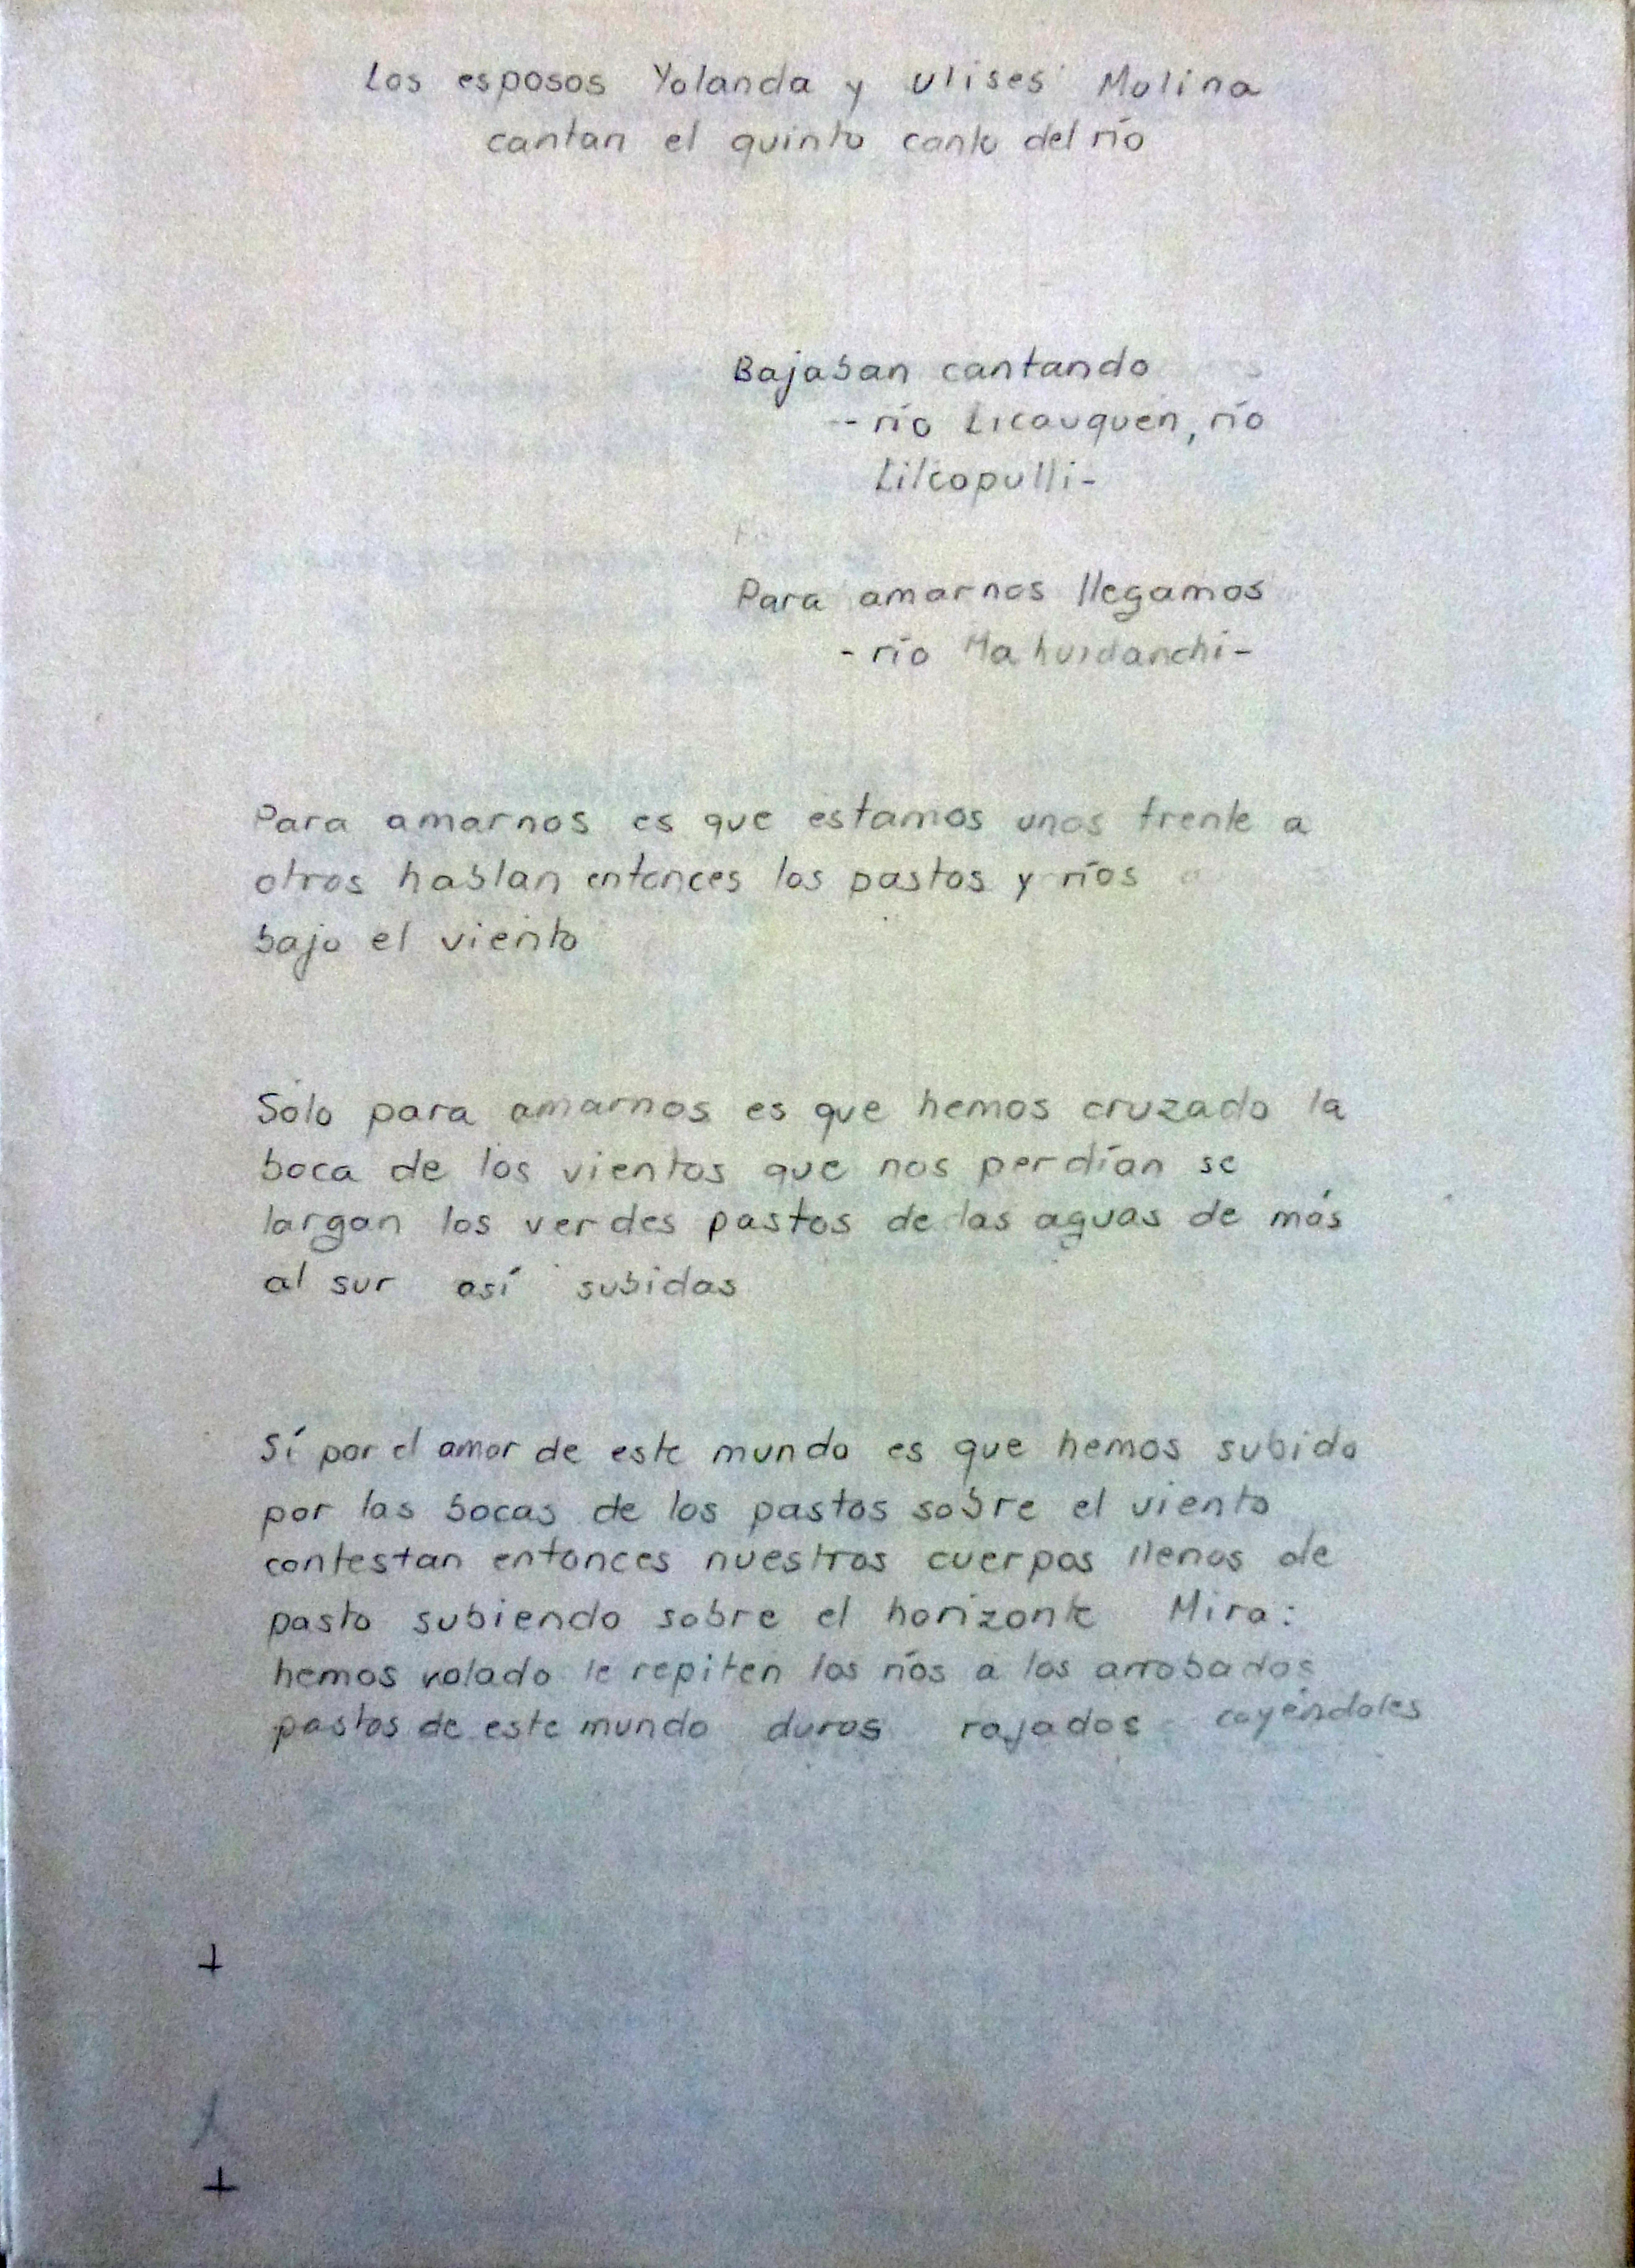 Los esposos Yolanda y Ulises Molina
cantan el quinto canto del río
Bajaban cantando
-- río Licauquen, río
Lilcopulli -
Para amarnos llegamos
- río Mahuidanchi -
Para amarnos es que estamos unos frente a
otros hablan entonces los pastos y ríos
bajo el viento
Sólo para amarnos es que hemos cruzado la
boca de los vientos que nos perdían se
largan los verdes pastos de las aguas de más
al sur así subidas
Sí por el amor de este mundo es que hemos subido
por las bocas de los pastos sobre el viento
contestan entonces nuestros cuerpos llenos de
pasto subiendo sobre el horizonte Mira:
hemos volado le repiten los ríos a los arrobados
pastos de este mundo duros rajados cayéndoles